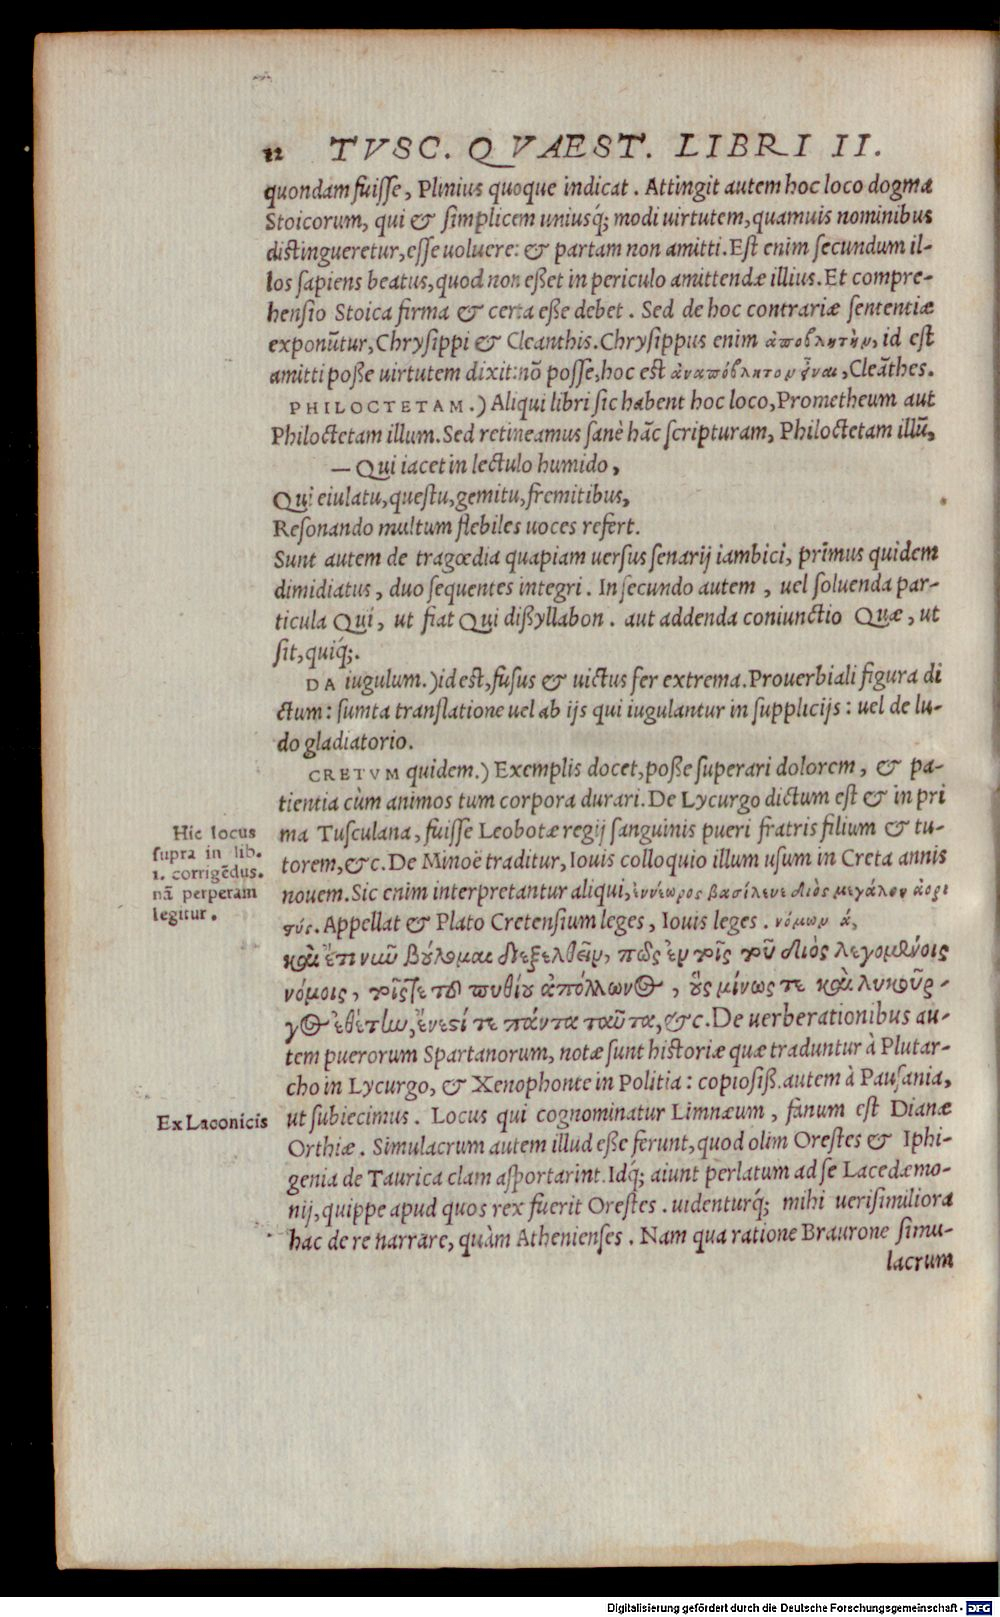 12 TVSC. QVAEST. LIBRI II.
quondam fuisse, Plinius quoque indicat. Attingit autem hoc loco dogma
Stoicorum, qui & simplicem uniusq́; modi uirtutem, quamuis nominibus
distingueretur, esse uoluere: & partam non amitti. Est enim secundum il-
los sapiens beatus, quod non eßet in periculo amittendæ illius. Et compre-
hensio Stoica firma & certa eße debet. Sed de hoc contrariæ sententiæ
exponũtur, Chrysippi & Cleanthis. Chrysippus enim ἀποβλητὴν, id est
amitti poße uirtutem dixit: nõ posse, hoc est ἀναπόβλητον εἶναι, Cleãthes.
PHILOCTETAM.) Aliqui libri sic habent hoc loco, Prometheum aut
Philoctetam illum. Sed retineamus sanè hãc scripturam, Philoctetam illũ,
— Qui iacet in lectulo humido,
Qui eiulatu, questu, gemitu, fremitibus,
Resonando multum flebiles uoces refert.
Sunt autem de tragœdia quapiam uersus senarij iambici, primus quidem
dimidiatus, duo sequentes integri. In secundo autem, uel soluenda par-
ticula Qui, ut fiat Qui dißyllabon. aut addenda coniunctio Quæ, ut
sit, quiq́;.
DA iugulum.) id est, fusus & uictus fer extrema. Prouerbiali figura di
ctum: sumta translatione uel ab ijs qui iugulantur in supplicijs: uel de lu-
do gladiatorio.
CRETVM quidem.) Exemplis docet, poße superari dolorem, & pa-
tientia cùm animos tum corpora durari. De Lycurgo dictum est & in pri
ma Tusculana, fuisse Leobotæ regij sanguinis pueri fratris filium & tu-
torem, &c. De Minoë traditur, Iouis colloquio illum usum in Creta annis
nouem. Sic enim interpretantur aliqui, ἐννέωρος βασίλευε διὸς μεγάλου ὀαρι
στύς. Appellat & Plato Cretensium leges, Iouis leges. νόμων ά,
καὶ ἔτι νῦν βούλομαι διεξελθεῖν, πῶς ἐν τοῖς τοῦ διὸς λεγομένοις
νόμοις, τοῖς τε τοῦ πυθίου ἀπόλλωνος, οὓς μίνως τε καὶ λυκοῦρ-
γος ἐθέτην, ἔνεστί τε πάντα ταῦτα, &c. De uerberationibus au-
tem puerorum Spartanorum, notæ sunt historiæ quæ traduntur à Plutar-
cho in Lycurgo, & Xenophonte in Politia: copiosiß. autem à Pausania,
ut subiecimus. Locus qui cognominatur Limnæum, fanum est Dianæ
Orthiæ. Simulacrum autem illud eße ferunt, quod olim Orestes & Iphi-
genia de Taurica clam asportarint. Idq́; aiunt perlatum ad se Lacedæmo-
nij, quippe apud quos rex fuerit Orestes. uidenturq́; mihi uerisimiliora
hac de re narrare, quàm Athenienses. Nam qua ratione Braurone simu-
lacrum
Hic locus
supra in lib.
1. corrigẽdus.
nã perperam
legitur.
Ex Laconicis
Digitalisierung gefördert durch die Deutsche Forschungsgemeinschaft - DFG